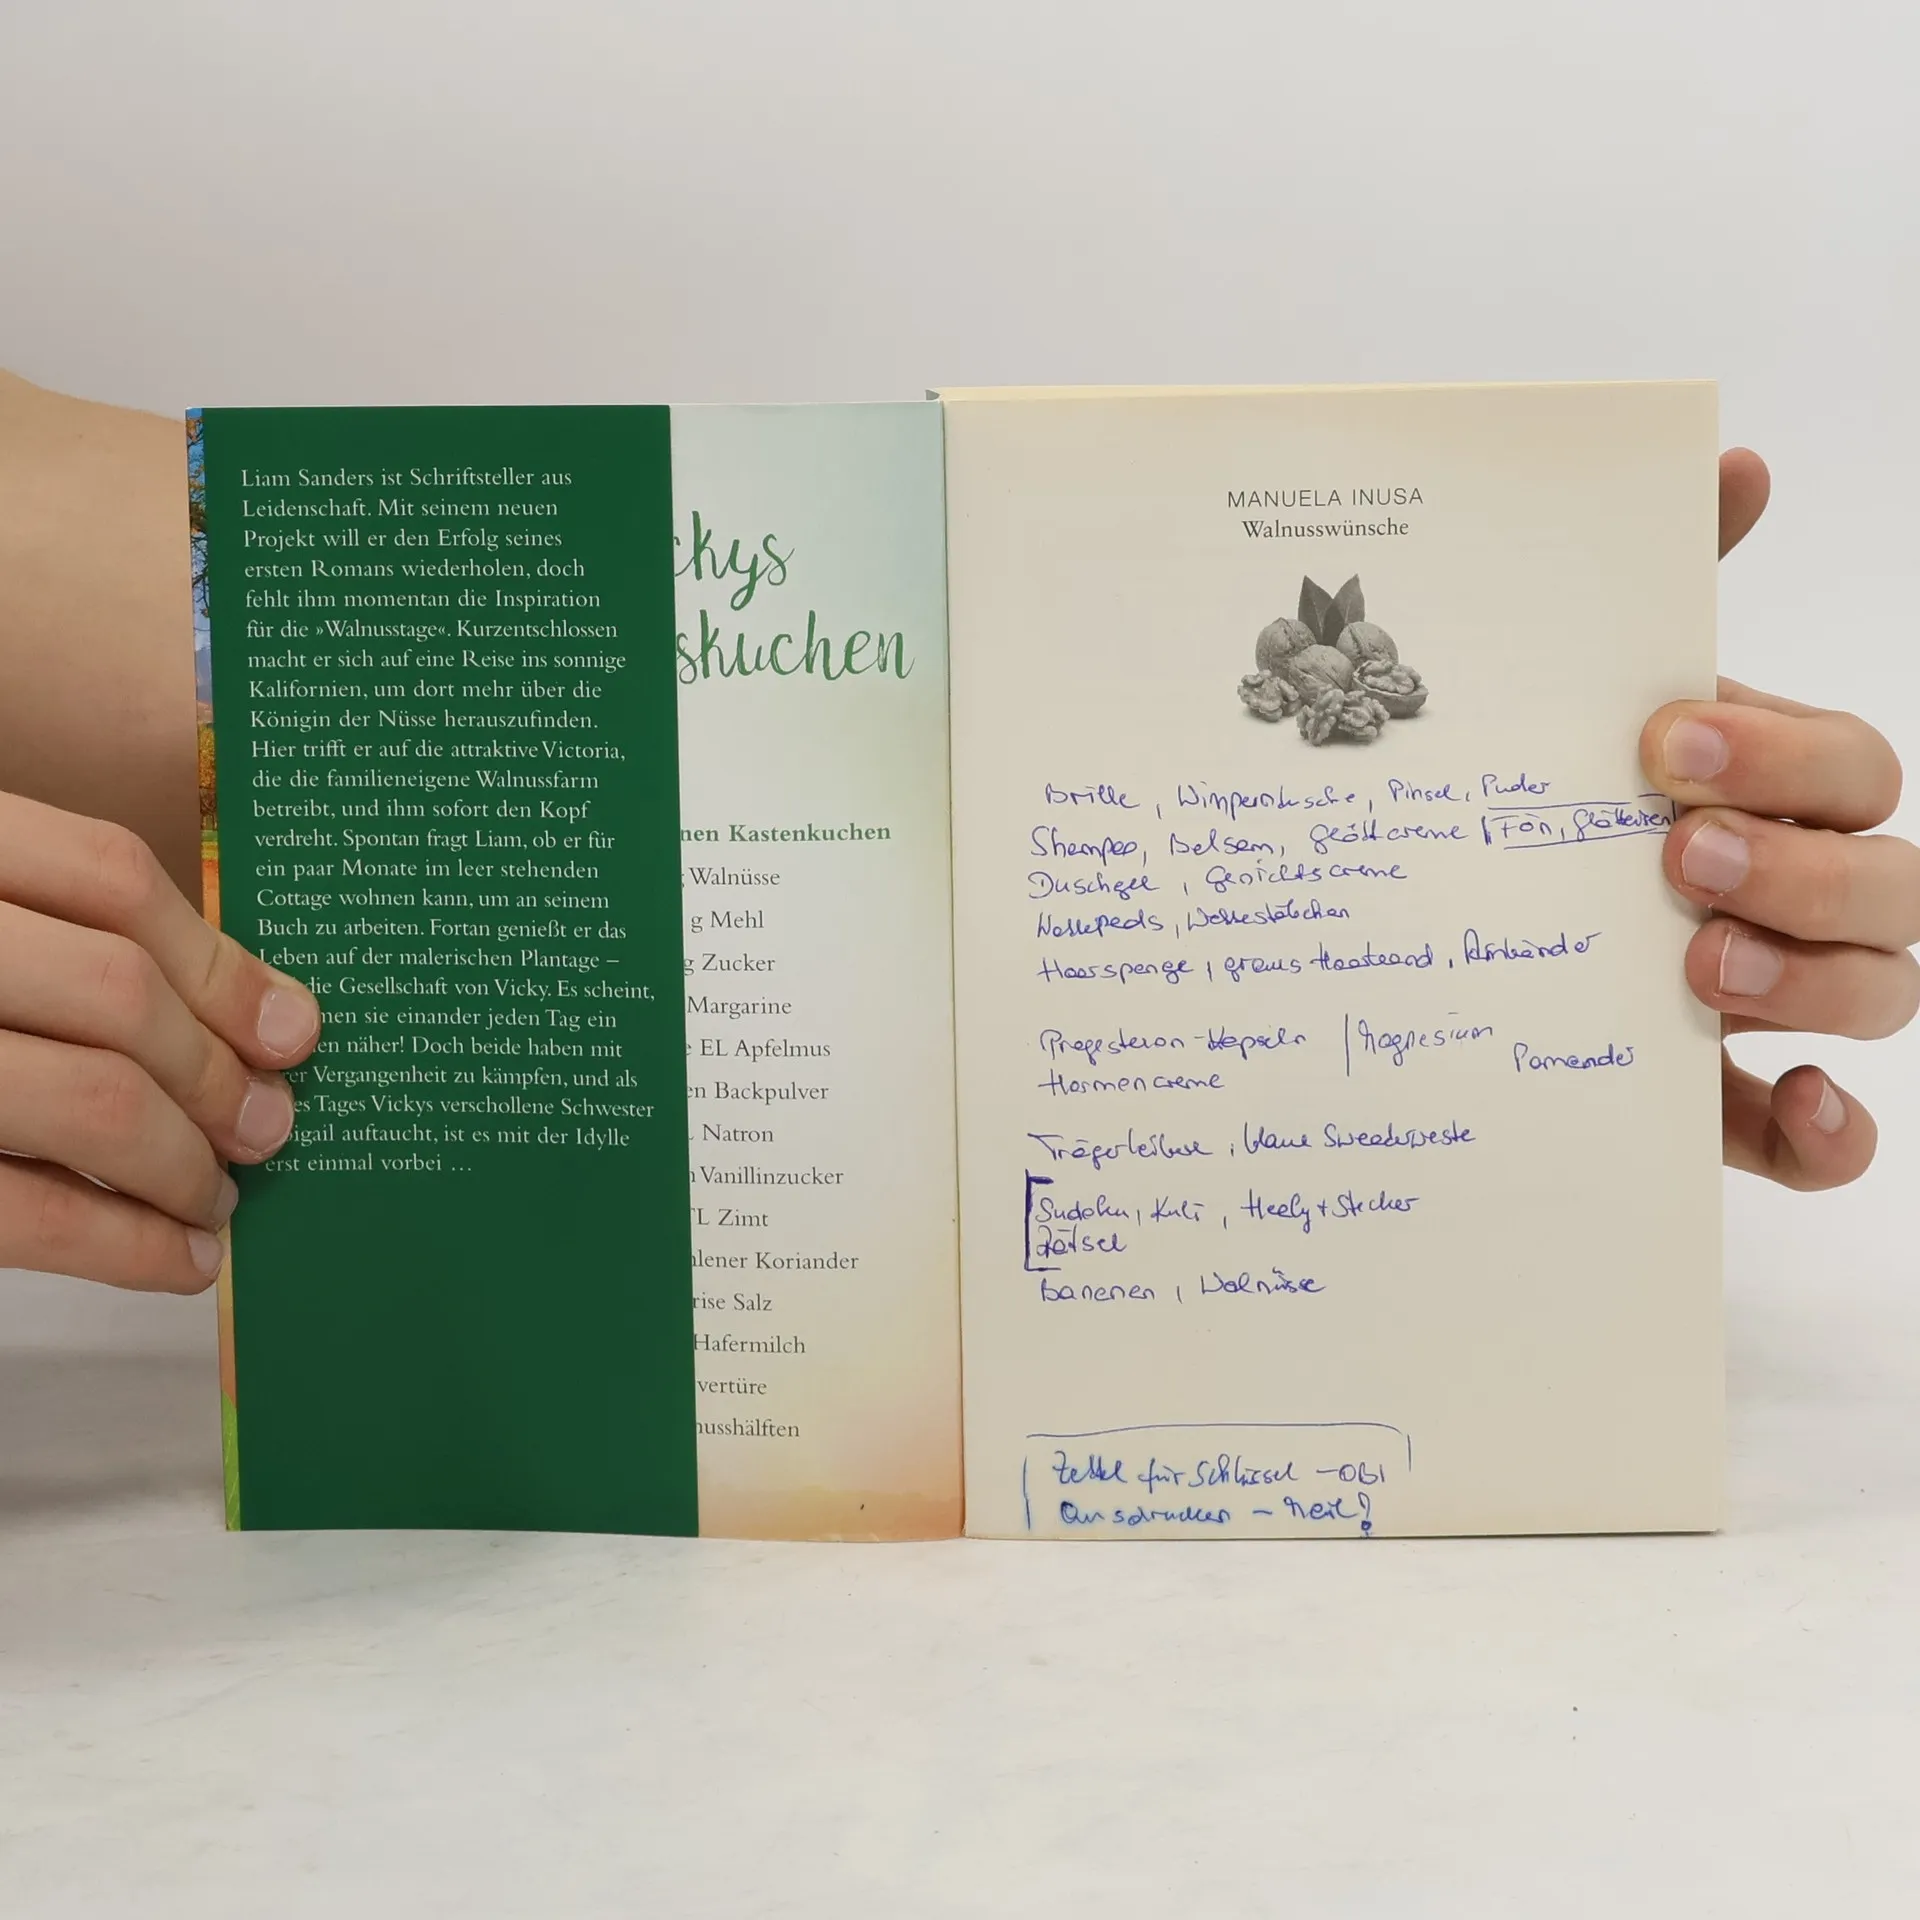 Liam Sanders ist Schriftsteller aus
Leidenschaft. Mit seinem neuen
Projekt will er den Erfolg seines
ersten Romans wiederholen, doch
fehlt ihm momentan die Inspiration
für die »Walnusstage«. Kurzentschlossen
macht er sich auf eine Reise ins sonnige
Kalifornien, um dort mehr über die
Königin der Nüsse herauszufinden.
Hier trifft er auf die attraktive Victoria,
die die familieneigene Walnussfarm
betreibt, und ihm sofort den Kopf
verdreht. Spontan fragt Liam, ob er für
ein paar Monate im leer stehenden
Cottage wohnen kann, um an seinem
Buch zu arbeiten. Fortan genießt er das
Leben auf der malerischen Plantage –
die Gesellschaft von Vicky. Es scheint,
men sie einander jeden Tag ein
en näher! Doch beide haben mit
rer Vergangenheit zu kämpfen, und als
es Tages Vickys verschollene Schwester
igail auftaucht, ist es mit der Idylle
erst einmal vorbei …
ckys
skuchen
nen Kastenkuchen
Walnüsse
g Mehl
g Zucker
Margarine
EL Apfelmus
en Backpulver
Natron
Vanillinzucker
TL Zimt
hlener Koriander
rise Salz
Hafermilch
vertüre
nusshälften
MANUELA INUSA
Walnusswünsche
Brille, Wimperntusche, Pinsel, Puder
Shampoo, Balsam, Fön, Glätteisen
Duschgel, Gesichtscreme
Wattepads, Wattestäbchen
Haarspange, graues Haarband, Armbänder
Progesteron-Kapseln / Magnesium
Pomander
Hormoncreme
blaue Sweatweste
Sudoku, Kuli, Handy + Stecker
Rätsel
Bananen, Walnüsse
Zettel für Schlüssel – OBI
Ausdrucken –